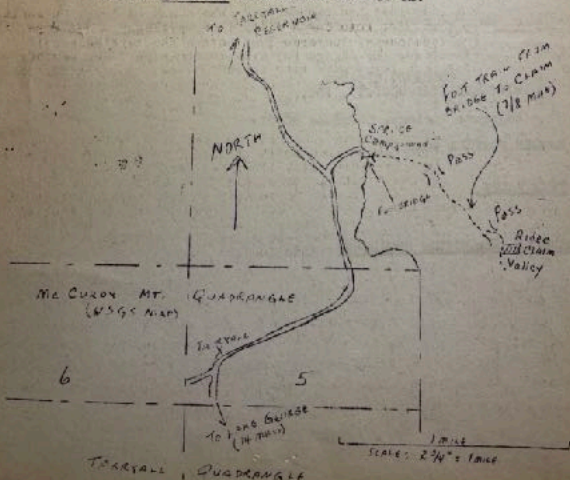 TO TARRYALL
RESERVOIR
FOOT TRAIL FROM
BRIDGE TO CLAIM
(7/8 MILE)
SPRUCE
NORTH
PASS
FOOTBRIDGE
PASS
CLAIM
Valley
Mc CURDY MT. QUADRANGLE
(USGS MAP)
TARRYALL
6
5
TO LAKE GEORGE
(14 MILES)
1 MILE
SCALE: 2 3/4" = 1 MILE
TARRYALL QUADRANGLE